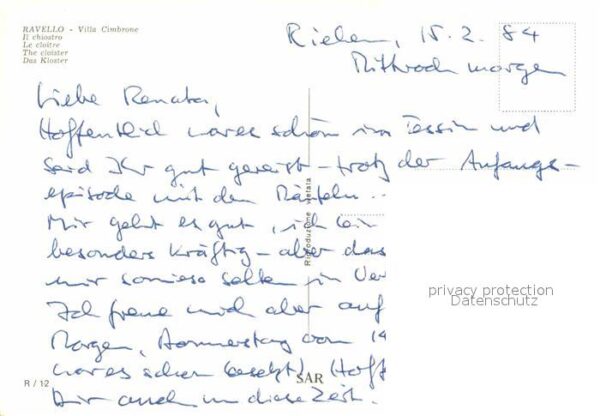 RAVELLO - Villa Cimbrone
Il chiostro
Le cloître
The cloister
Das Kloster
Riehen, 15. 2. 84
Mittwoch morgen
Liebe Renata,
Hoffentlich war es schön im Tessin und
seid Ihr gut gereist – trotz der Anfangs-
episode mit den
Mir geht es gut, ich bin
besonders kräftig – aber das
mir sowieso selten in
Ich freue mich aber auf
Morgen, Donnerstag von 14
war es schon besetzt) Hoff
Dir auch in diese Zeit.
Riproduzione vietata
privacy protection
Datenschutz
R / 12
SAR